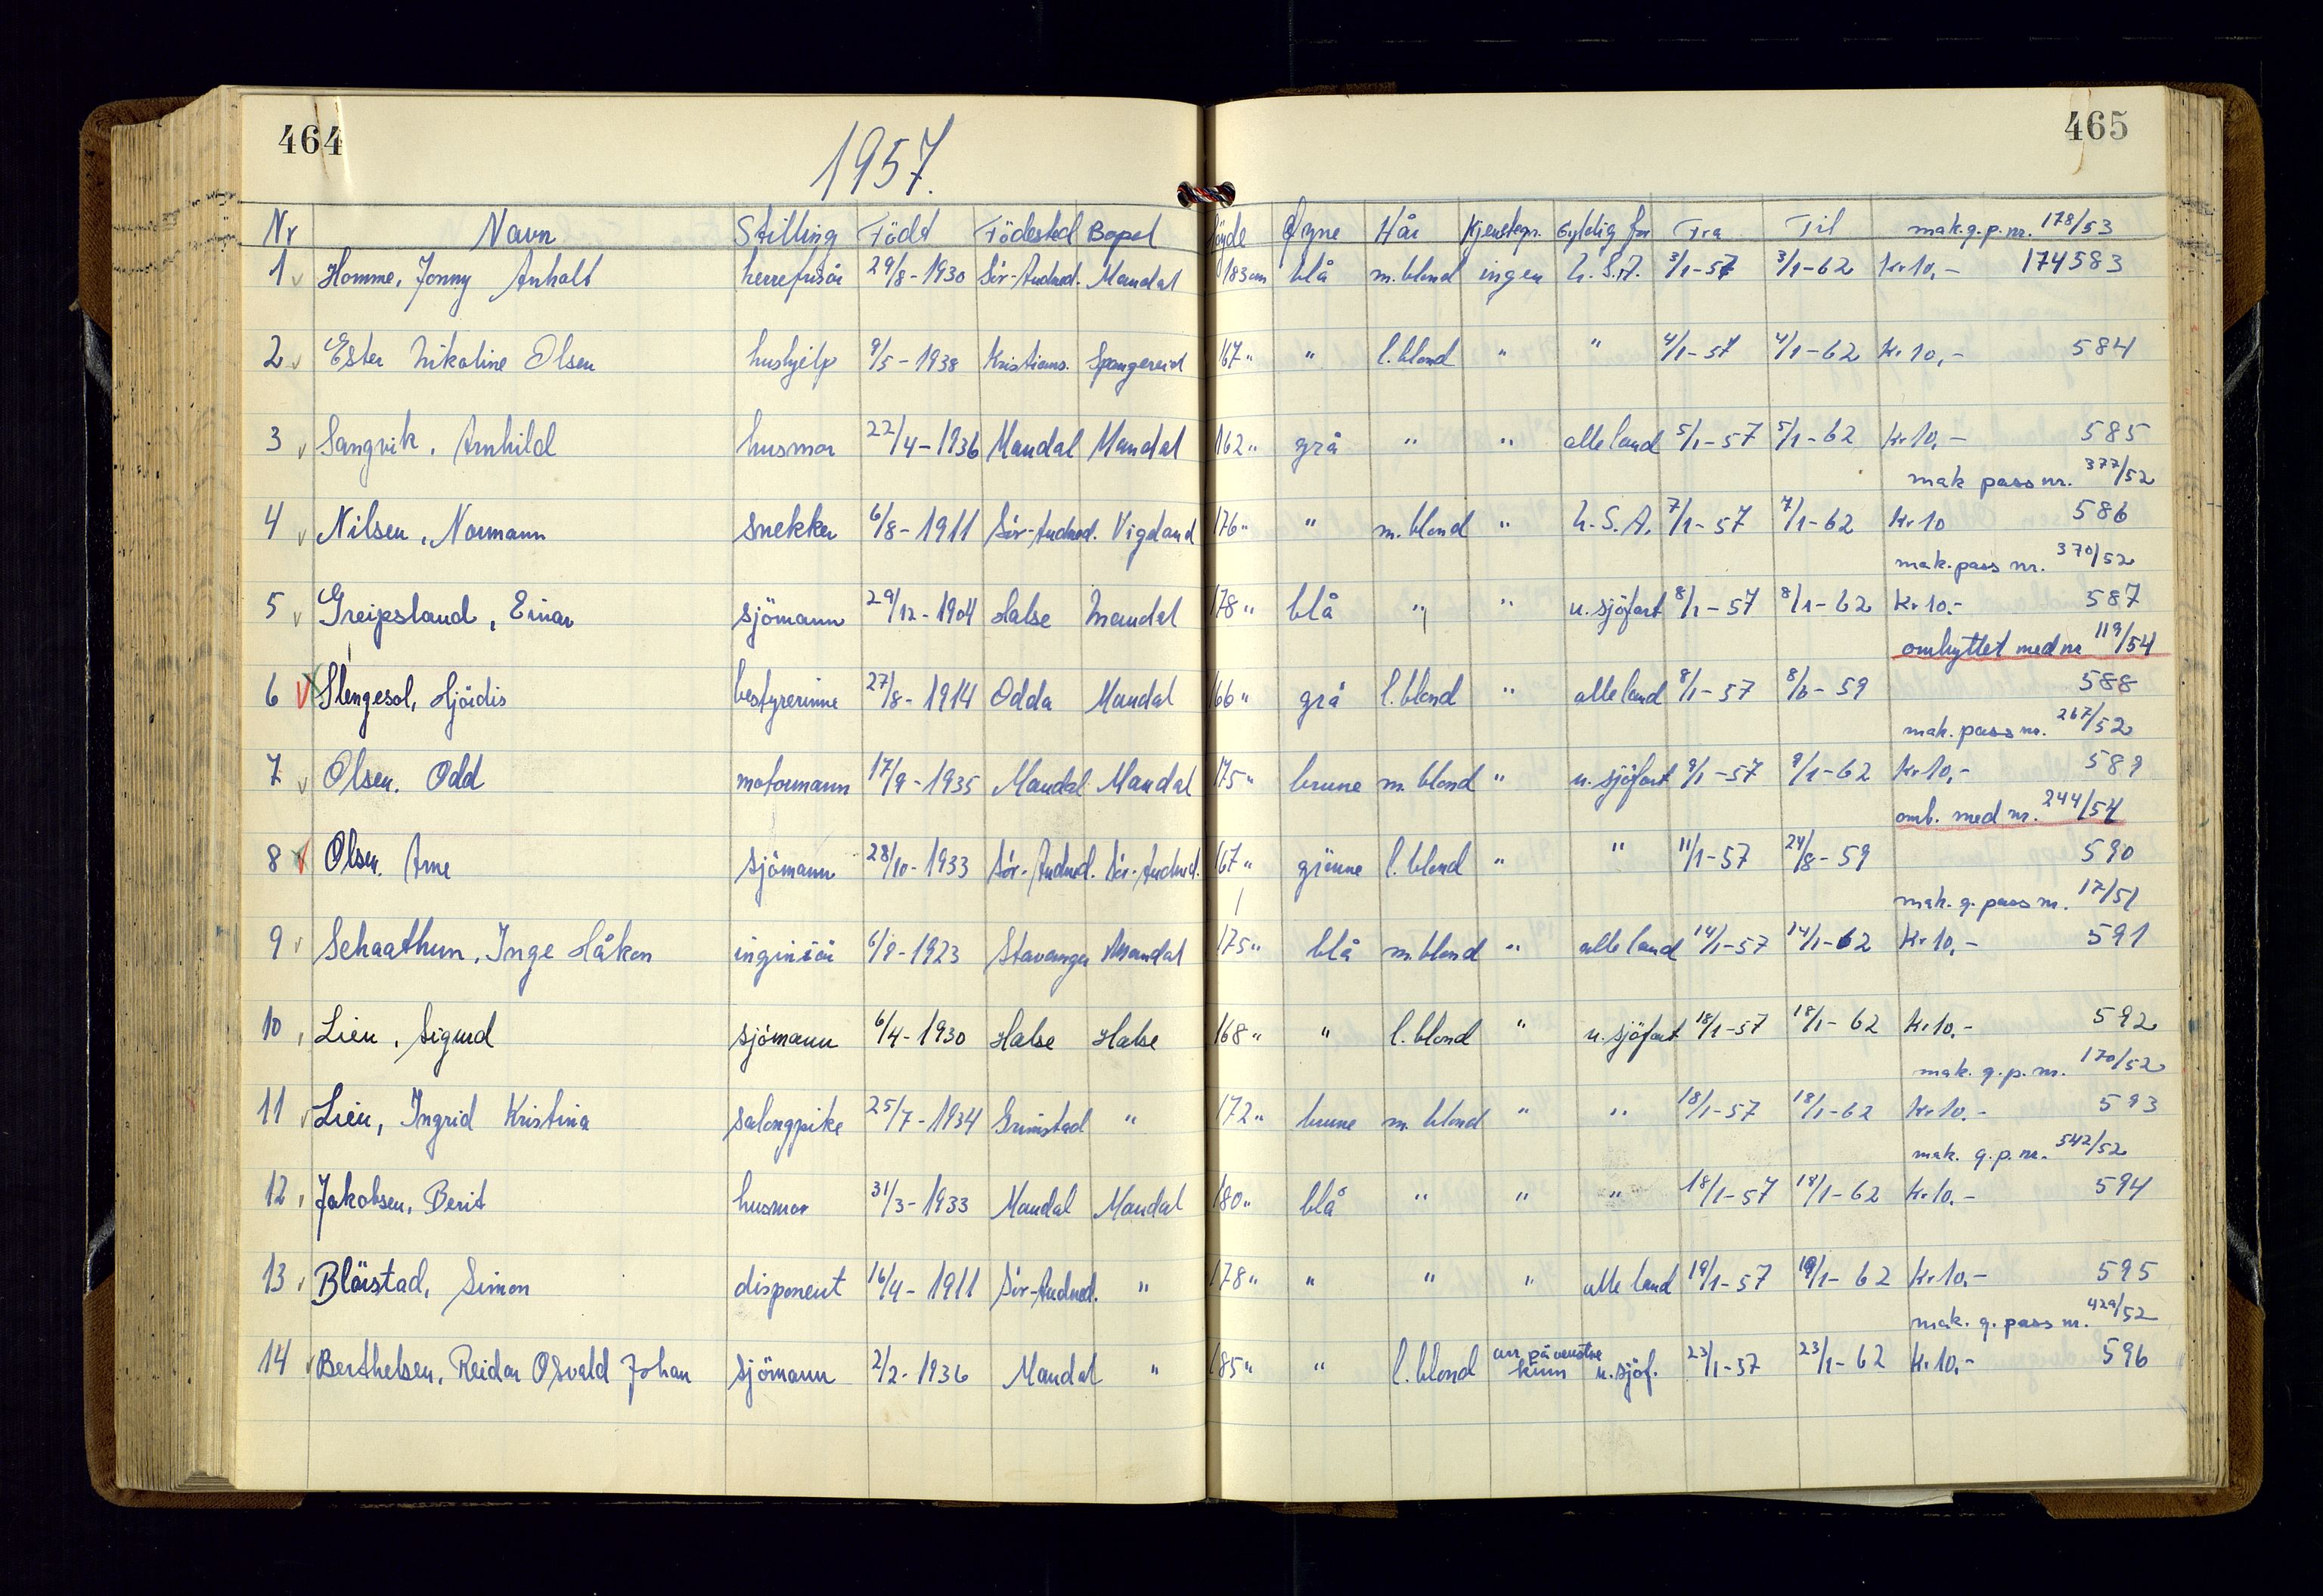 464
465
1957.
Nr Navn Stilling Födt Födested Bopel Höyde Øyne Hår Kjennetegn. Gyldig for Fra Til mak.g.p.nr. 178/53
1 Homme, Jonny Anholt herrefrisör 29/8-1930 Sör-Audned. Mandal 183cm blå m.blond ingen U.S.A. 3/1-57 3/1-62 Kr 10,- 174583
2 Ester Nikoline Olsen hushjelp 9/5-1938 Kristians. Spangereid 167" " l.blond " " 4/1-57 4/1-62 Kr 10,- 584
3 Sangvik, Arnhild husmor 22/4-1936 Mandal Mandal 162" grå " " alle land 5/1-57 5/1-62 Kr 10,- 585
mak pass nr. 377/52
4 Nilsen, Normann snekker 6/8-1911 Sör-Audned. Vigeland 176" " m.blond " U.S.A. 7/1-57 7/1-62 Kr 10 586
mak.pass nr. 370/52
5 Greipsland, Einar sjömann 29/12-1904 Halse Mandal 178" blå " " u.sjöfart 8/1-57 8/1-62 Kr 10.- 587
ombyttet med nr 119/54
6 Stengesol, Hjördis bestyrerinne 27/8-1914 Odda Mandal 166" grå l.blond " alle land 8/1-57 8/6-59 588
mak. pass nr. 267/52
7 Olsen. Odd motormann 17/9-1935 Mandal Mandal 175" brune m.blond " u.sjöfart 9/1-57 9/1-62 Kr 10,- 589
omb. med nr. 244/54
8 Olsen. Arne sjömann 28/10-1933 Sör-Audned. Sör-Audned. 167" grönne l.blond " " 11/1-57 24/8-59 590
mak. g. pass nr. 17/51
9 Schaathun, Inge Håkon inginiör 6/9-1923 Stavanger Mandal 175" blå m.blond " alle land 14/1-57 14/1-62 Kr 10,- 591
10 Lien, Sigurd sjömann 6/4-1930 Halse Halse 168" " l.blond " u.sjöfart 18/1-57 18/1-62 Kr 10.- 592
mak. g.p.nr. 170/52
11 Lien, Ingrid Kristina salongpike 25/7-1934 Grimstad " 172" brune m. blond " " 18/1-57 18/1-62 Kr 10.- 593
mak. g.p.nr. 542/52
12 Jakobsen, Berit husmor 31/3-1933 Mandal Mandal 180" blå " " " 18/1-57 18/1-62 Kr 10.- 594
13 Blörstad, Simon disponent 16/4-1911 Sör-Audned. " 178" " " " alle land 19/1-57 19/1-62 Kr 10.- 595
mak. g. pass nr. 429/52
14 Berthelsen, Reidar Osvald Johan sjömann 2/2-1936 Mandal " 185" " l.blond arr på venstre kinn u.sjöf. 23/1-57 23/1-62 Kr 10,- 596